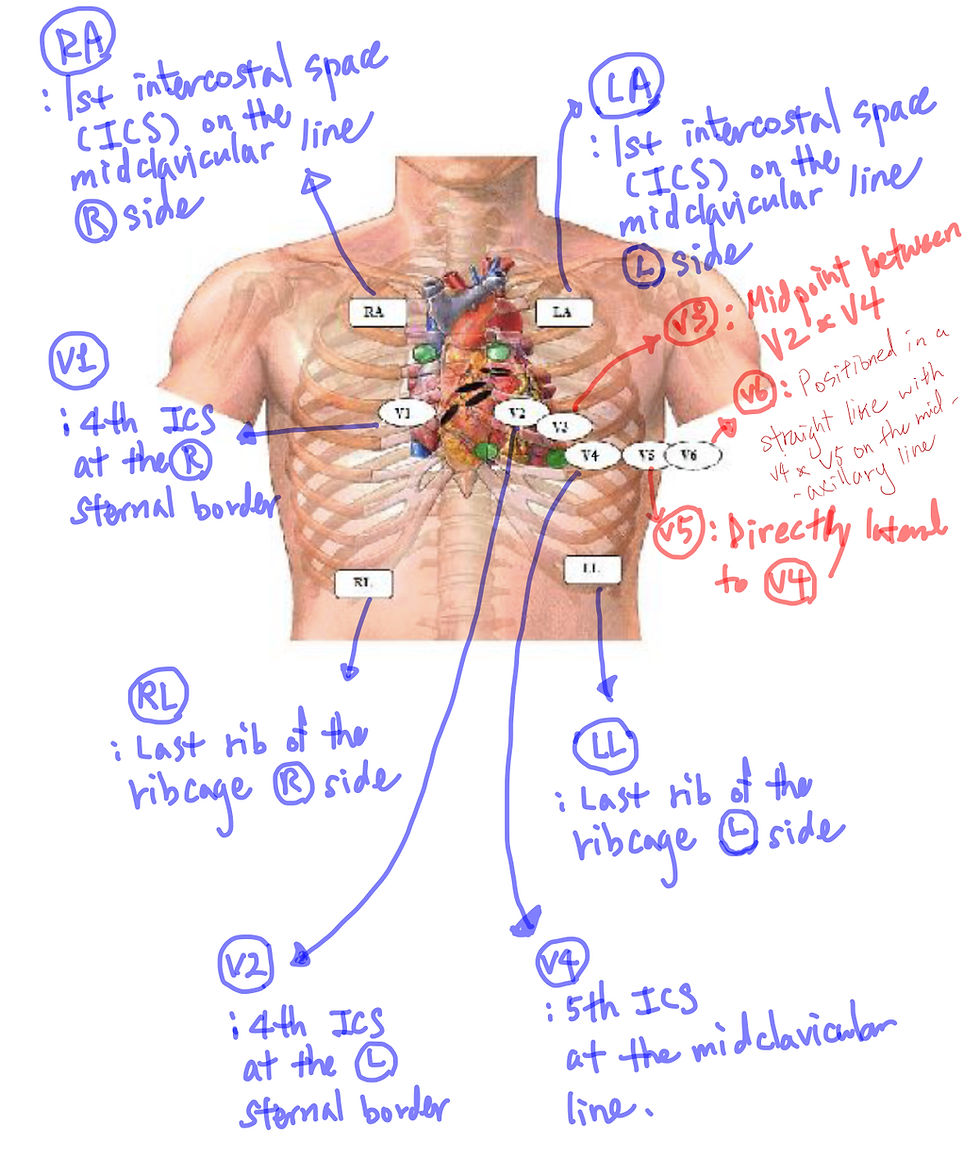 RA
: 1st intercostal space
(ICS) on the
midclavicular line
R side
LA
: 1st intercostal space
(ICS) on the
midclavicular line
L side
V3 : Midpoint between
V2 & V4
V6 : Positioned in a
straight line with
V4 & V5 on the mid-
-axillary line
V5 : Directly lateral
to V4
V1
: 4th ICS
at the R
sternal border
RA
LA
V1
V2
V3
V4
V5
V6
RL
LL
RL
: Last rib of the
ribcage R side
LL
: Last rib of the
ribcage L side
V2
: 4th ICS
at the L
sternal border
V4
: 5th ICS
at the midclavicular
line.